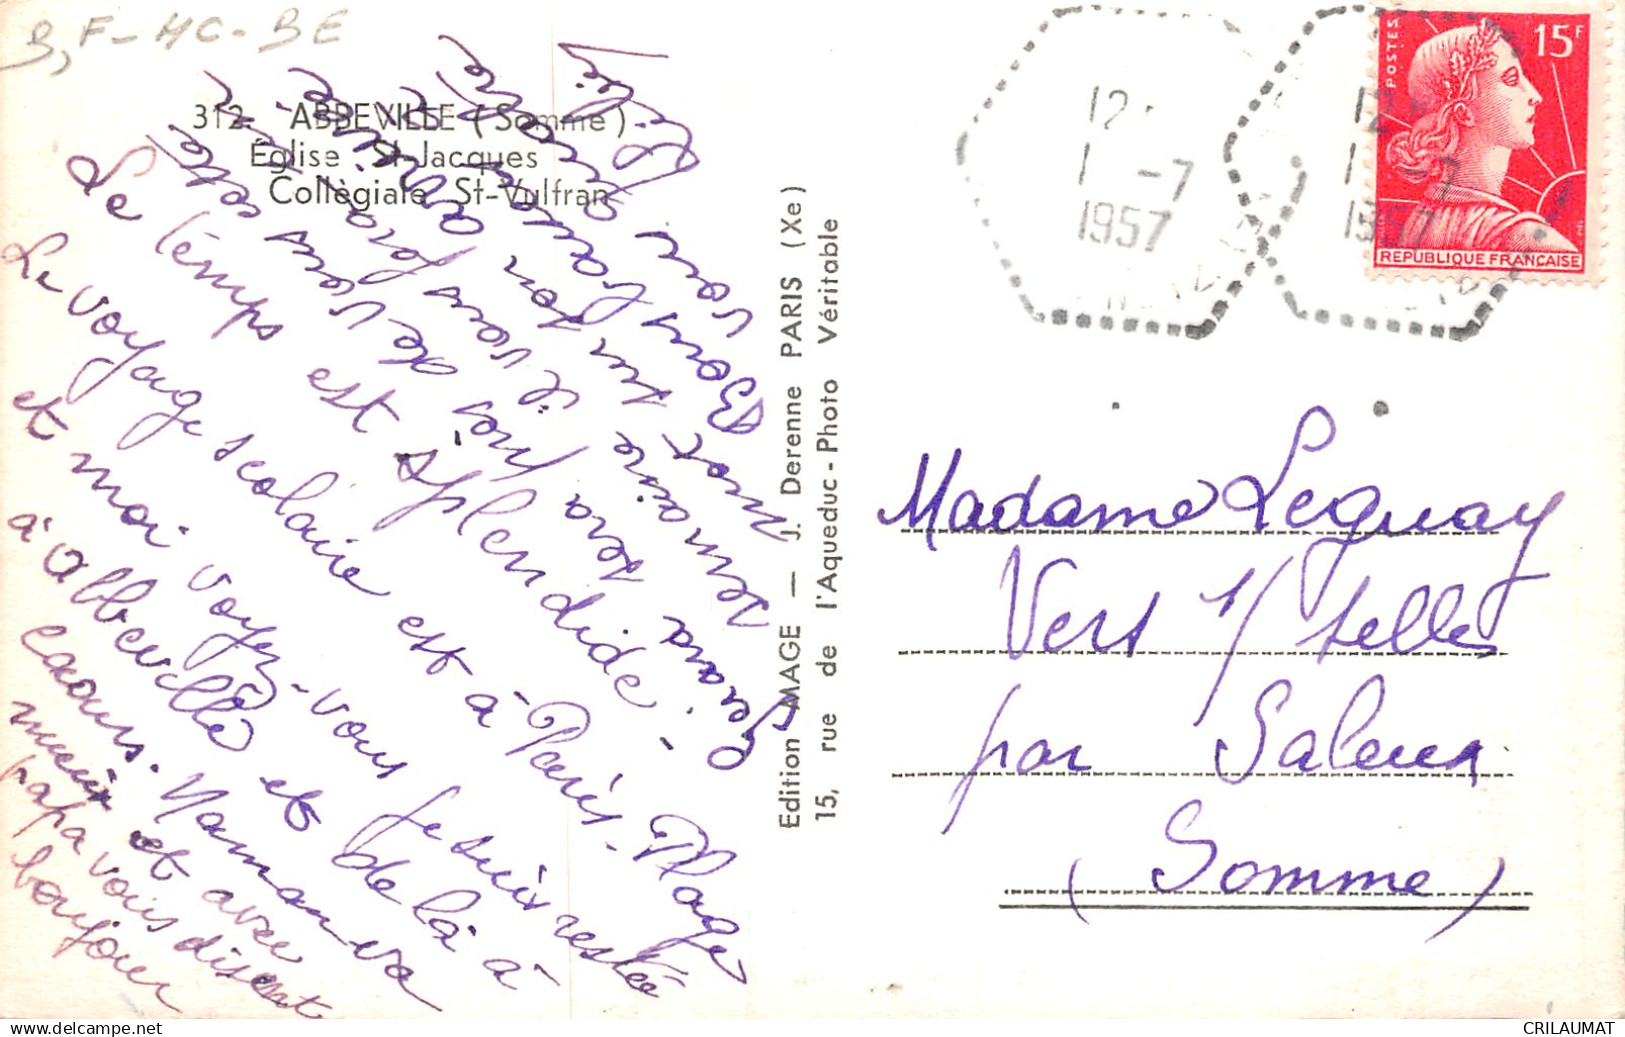 B,F-HC-BE
312. ABBEVILLE (Somme)
Église St-Jacques
Collègiale St-Vulfran
Le temps est splendide -
Le voyage scolaire est à Paris - Plage
et moi voyez-vous je suis restée
à Abbeville et de là à
Caours. Maman va
mieux et avec
papa vous disent
bonjour
Gérard sera près de vous cette
semaine il vous fera
mot sur son
Bons baisers à
vous
Edition MAGE — J. Derenne PARIS (Xe)
15, rue de l'Aqueduc - Photo Véritable
12
1 -7
1957
12
1 -7
1957
POSTES
15F
REPUBLIQUE FRANÇAISE
Madame Leguay
Vers s/ Selles
par Saleux
(Somme)
CRILAUMAT